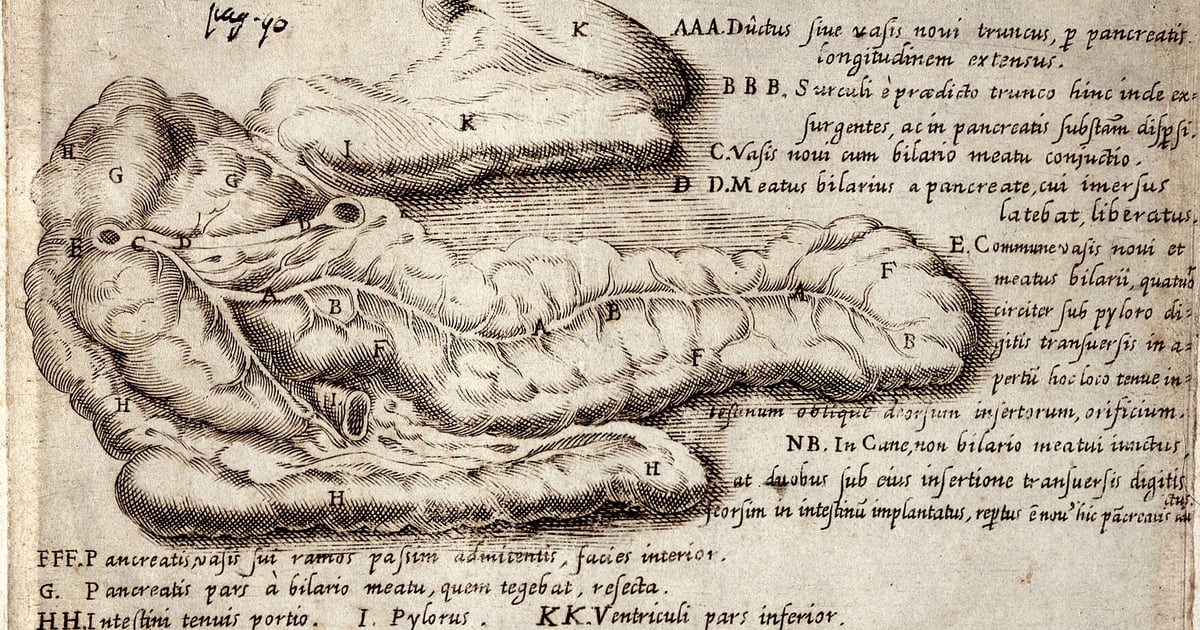 pag. 90
AAA. Ductus ſiue vaſis noui truncus, p pancreatis
longitudinem extensus.
BBB. Surculi è prædicto trunco hinc inde ex=
ſurgentes, ac in pancreatis ſubſtam diſpſi
C. Vaſis noui cum bilario meatu conjuctio.
D D. Meatus bilarius a pancreate, cui imerſus
latebat, liberatus,
E. Commune vaſis noui et
meatus bilarii, quatuō
circiter ſub pyloro di-
gitis tranſuerſis in a-
pertū hoc loco tenue in-
teſtinum oblique deorſum inſertorum, orificium.
NB. In Cane, non bilario meatui iunctus,
at duobus ſub eius inſertione tranſuerſis digitis
ſeorſim in inteſtinū implantatus, reptus ē nou' hic pācreatis
FFF. Pancreatis, vaſis ſui ramos paſſim admitentis, facies interior.
G. Pancreatis pars à bilario meatu, quem tegebat, reſecta.
HH. Inteſtini tenuis portio. I. Pylorus. KK. Ventriculi pars inferior.
K
K
I
H
G
G
D
E
C
D
A
B
A
B
A
F
B
F
F
H
H
H
H